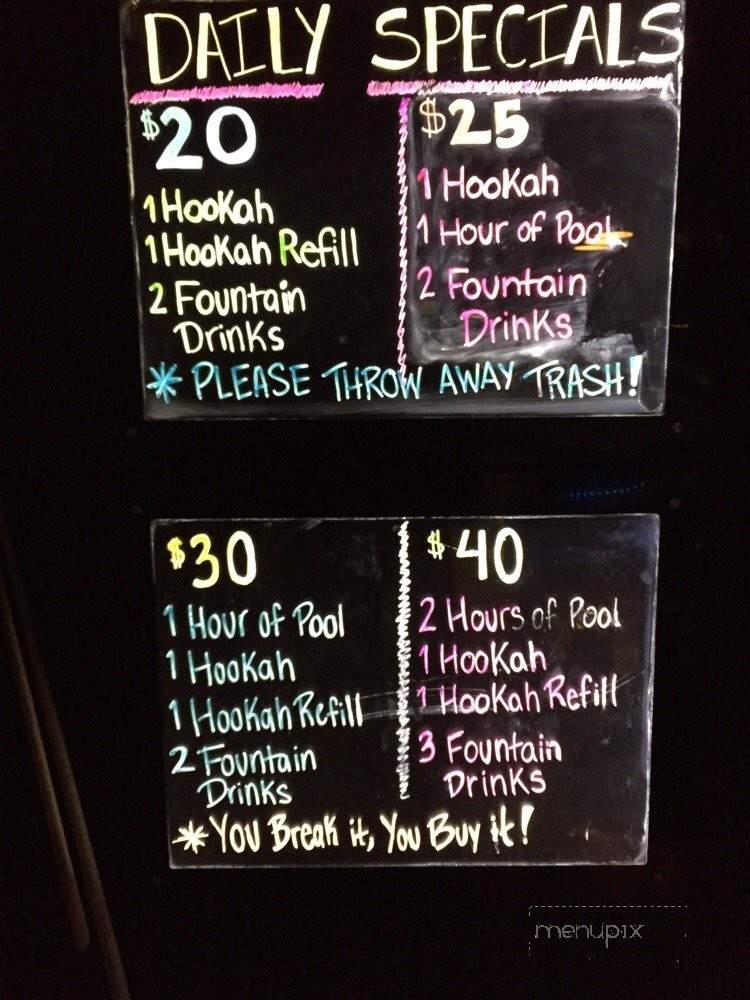 DAILY SPECIALS
$20
1 Hookah
1 Hookah Refill
2 Fountain
Drinks
$25
1 Hookah
1 Hour of Pool
2 Fountain
Drinks
* PLEASE THROW AWAY TRASH!
$30
1 Hour of Pool
1 Hookah
1 Hookah Refill
2 Fountain
Drinks
$40
2 Hours of Pool
1 Hookah
1 Hookah Refill
3 Fountain
Drinks
* You Break it, You Buy it!
menupix